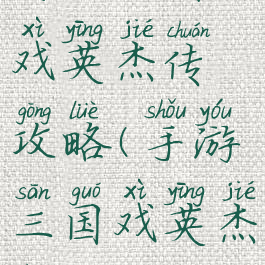 xì yīng jié chuán
戏英杰传
gōng lüè shǒu yóu
攻略(手游
sān guó xì yīng jié
三国戏英杰